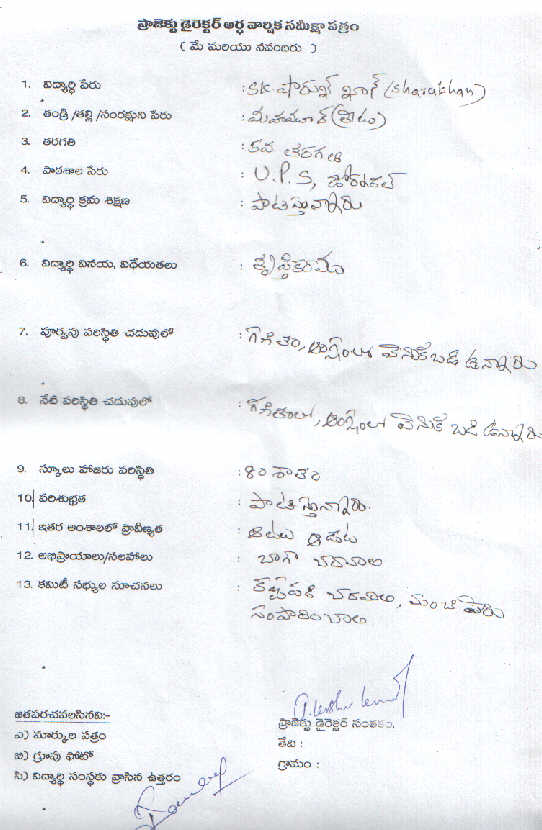 ప్రాజెక్టు డైరెక్టర్ అర్ధ వార్షిక సమీక్షా పత్రం
( మే మరియు నవంబరు )
1. విద్యార్థి పేరు : SK. షారుఖ్ ఖాన్ (Sharukhan)
2. తండ్రి /తల్లి /సంరక్షుని పేరు :
3. తరగతి : 5వ తరగతి
4. పాఠశాల పేరు : U.P.S,
5. విద్యార్థి క్రమ శిక్షణ : పాటిస్తున్నారు
6. విద్యార్థి వినయ, విధేయతలు : తృప్తికరము
7. పూర్వపు పరిస్థితి చదువులో : గణితం, ఆంగ్లంలో వెనుకబడి ఉన్నారు
8. నేటి పరిస్థితి చదువులో : గణితంలో, ఆంగ్లంలో వెనుకబడి ఉన్నారు
9. స్కూలు హాజరు పరిస్థితి : 80 శాతం
10. పరిశుభ్రత : పాటిస్తున్నారు.
11. ఇతర అంశాలలో ప్రావీణ్యత : ఆటలు ఆడుట
12. అభిప్రాయాలు/సలహాలు : బాగా చదవాలి
13. కమిటీ సభ్యుల సూచనలు : కష్టపడి చదవాలి, మంచి పేరు
సంపాదించాలి
జతపరచవలసినవి:-
ఎ) మార్కుల పత్రం
బి) గ్రూపు ఫోటో
సి) విద్యార్థి సంస్థకు వ్రాసిన ఉత్తరం
ప్రాజెక్టు డైరెక్టర్ సంతకం.
తేది :
గ్రామం :